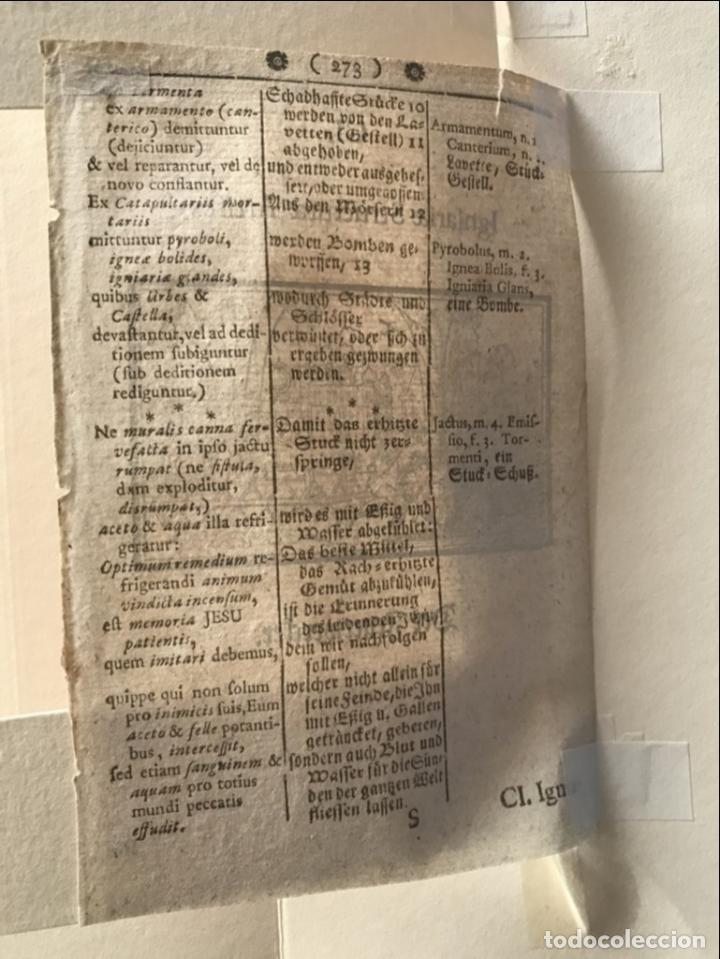 ( 273 )
ex armamento (can-
terico) demittuntur
(dejiciuntur)
& vel reparantur, vel de
novo conflantur.
Ex Catapultariis mor-
tariis
mittuntur pyroboli,
igneæ bolides,
igniariæ glandes,
quibus Urbes &
Castella,
devastantur, vel ad dedi-
tionem subiguntur
(sub deditionem
rediguntur.)
* * *
Ne muralis canna fer-
vefacta in ipso jactu
rumpat (ne fistula,
dum exploditur,
disrumpat,)
aceto & aqua illa refri-
geratur:
Optimum remedium re-
frigerandi animum
vindicta incensum,
est memoria JESU
patientis,
quem imitari debemus,
quippe qui non solum
pro inimicis suis, Eum
aceto & felle potanti-
bus, intercessit,
sed etiam sanguinem &
aquam pro totius
mundi peccatis
effudit.
Schadhaffte Stücke 10
werden von den La-
vetten (Gestell) 11
abgehoben,
und entweder ausgebes-
sert, oder umgegossen.
Aus den Mörsern 12
werden Bomben ge-
worffen, 13
wodurch Städte und
Schlösser
verwüstet, oder sich zu
ergeben gezwungen
werden.
* * *
Damit das erhitzte
Stuck nicht zer-
springe,
wird es mit Eßig und
Wasser abgekühlet:
Das beste Mittel,
das Rach-erhitzte
Gemüt abzukühlen,
ist die Erinnerung
des leidenden JEsu,
dem wir nachfolgen
sollen,
welcher nicht allein für
seine Feinde, die Ihn
mit Eßig u. Gallen
geträncket, gebeten,
sondern auch Blut und
Wasser für die Sün-
den der gantzen Welt
fliessen lassen.
Armamentum, n. 2
Canterium, n. 2.
Lavette, Stück-
Gestell.
Pyrobolus, m. 2.
Ignea Bolis, f. 3.
Igniaria Glans,
eine Bombe.
Jactus, m. 4. Emis-
sio, f. 3. Tor-
menti, ein
Stuck-Schuß.
S
CI. Ign
todocoleccion